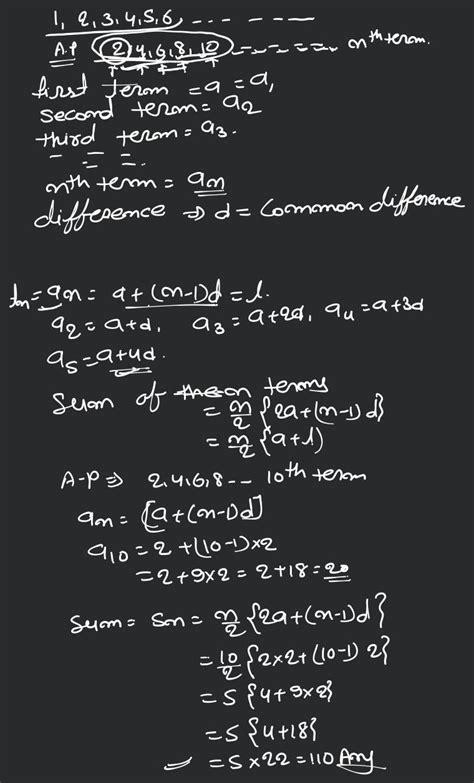 1, 2, 3, 4, 5, 6, - - - - - - -
A.P 2, 4, 6, 8, 10 - - - - - - nth term.
first term = a = a₁
second term = a₂
third term = a₃.
nth term = an
difference ⇒ d = Common difference
tn = an = a + (n-1)d = l.
a₂ = a+d, a₃ = a+2d, a₄ = a+3d
a₅ = a+4d.
Sum of n terms
= n/2 {2a+(n-1)d}
= n/2 {a+l)
A-P ⇒ 2, 4, 6, 8 - - 10th term
an = [a+(n-1)d]
a₁₀ = 2 + (10-1)×2
= 2+9×2 = 2+18 = 20
Sum = Sn = n/2 {2a+(n-1)d}
= 10/2 {2×2+(10-1) 2}
= 5 {4+9×2}
= 5 {4+18}
= 5×22 = 110 Ans